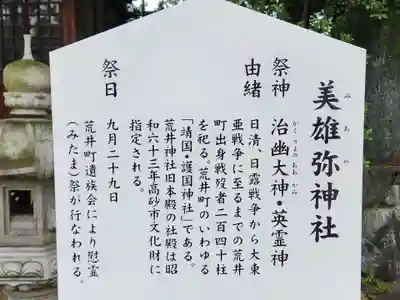 美雄弥神社
みおや
祭神 治幽大神・英霊神
由緒 日清、日露戦争から大東
亜戦争に至るまでの荒井
町出身戦歿者二百四十柱
を祀る。荒井町のいわゆる
「靖国・護国神社」である。
荒井神社旧本殿の社殿は昭
和六十三年高砂市文化財に
指定される。
祭日 九月二十九日
荒井町遺族会により慰霊
(みたま)祭が行なわれる。